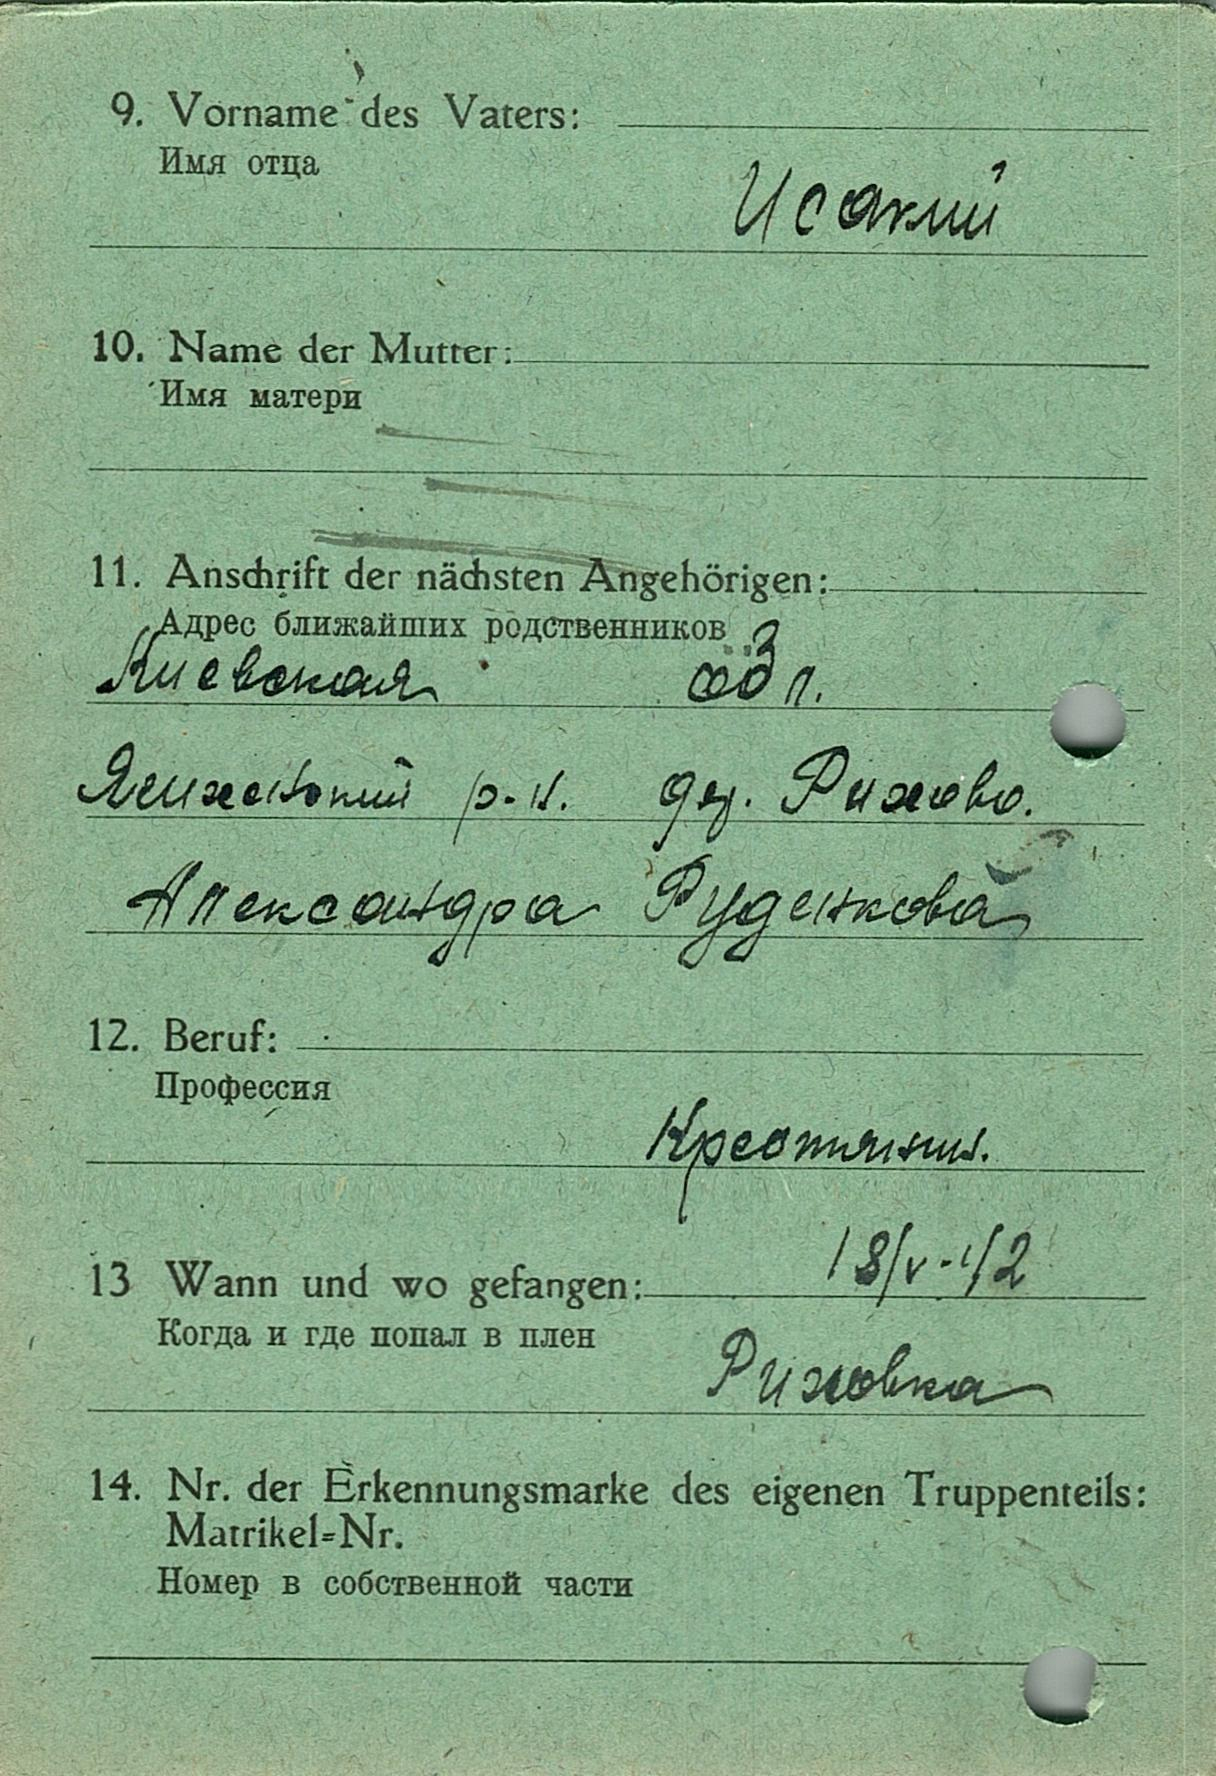 9. Vorname des Vaters:
Имя отца
Исакий
10. Name der Mutter:
Имя матери
11. Anschrift der nächsten Angehörigen:
Адрес ближайших родственников
Киевская обл.
р-н. дер. Рижово.
Александра Руденкова
12. Beruf:
Профессия
Крестянин.
13 Wann und wo gefangen: 18/V-42
Когда и где попал в плен
Рижовка
14. Nr. der Erkennungsmarke des eigenen Truppenteils:
Matrikel=Nr.
Номер в собственной части